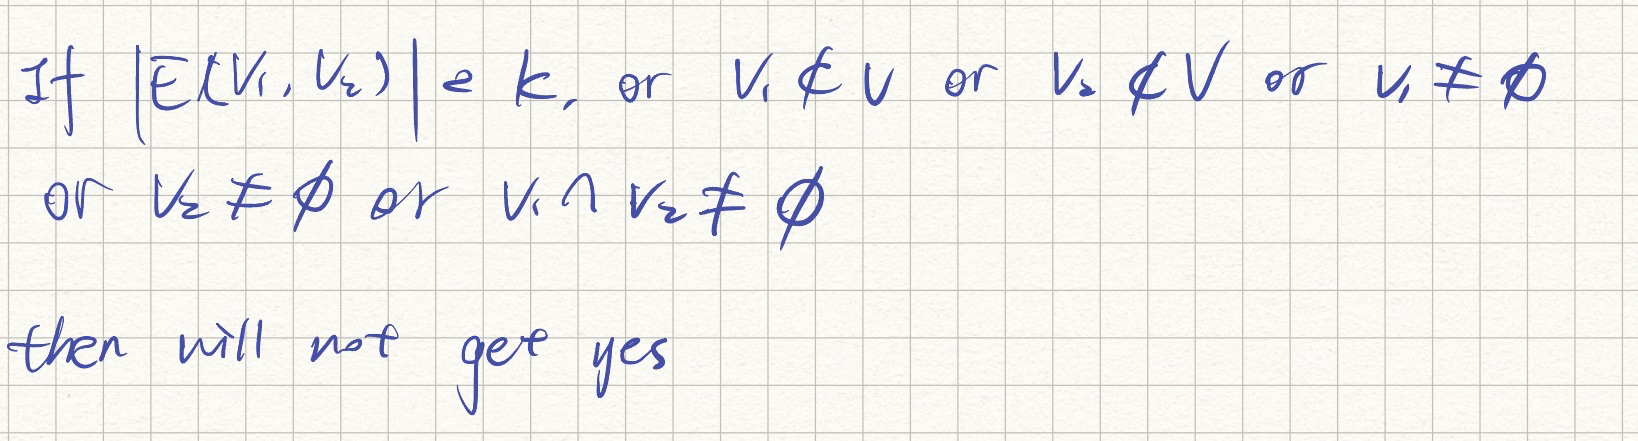 If |E(V₁, V₂)| e k, or V₁ ⊄ V or V₂ ⊄ V or V₁ ≠ ∅
or V₂ ≠ ∅ or V₁ ∩ V₂ ≠ ∅
then will not get yes